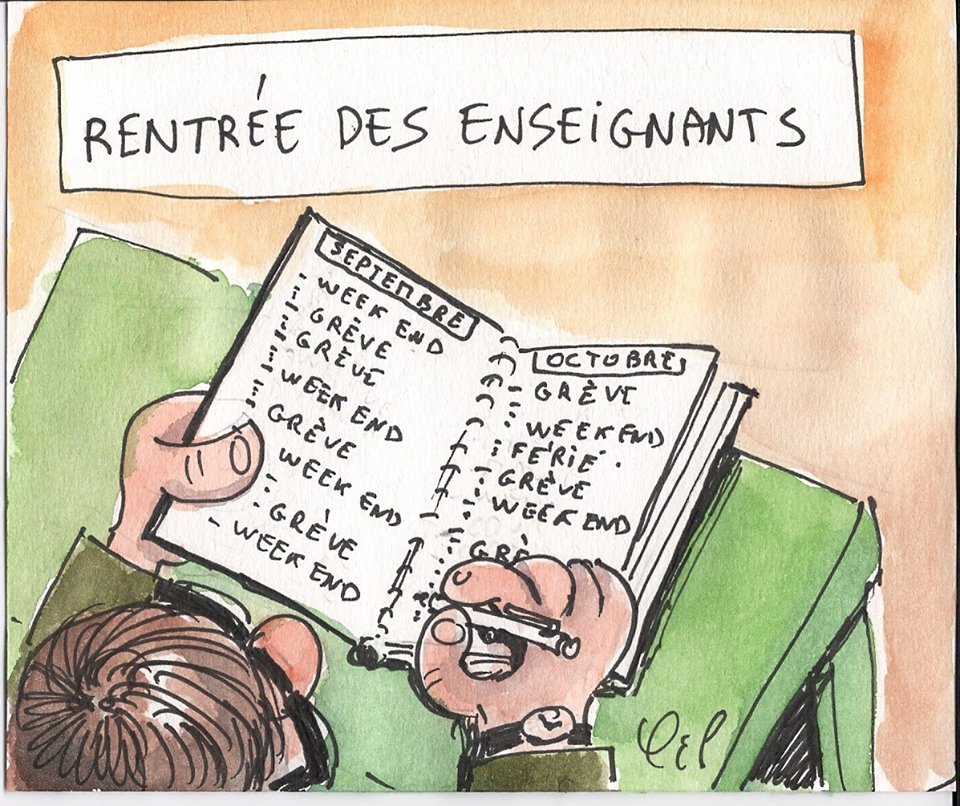 RENTRÉE DES ENSEIGNANTS
SEPTEMBRE
WEEK END
GRÈVE
GRÈVE
WEEK END
GRÈVE
WEEK END
GRÈVE
- WEEK END
OCTOBRE
GRÈVE
WEEK END
FÉRIÉ.
GRÈVE
WEEK END
GRÈ